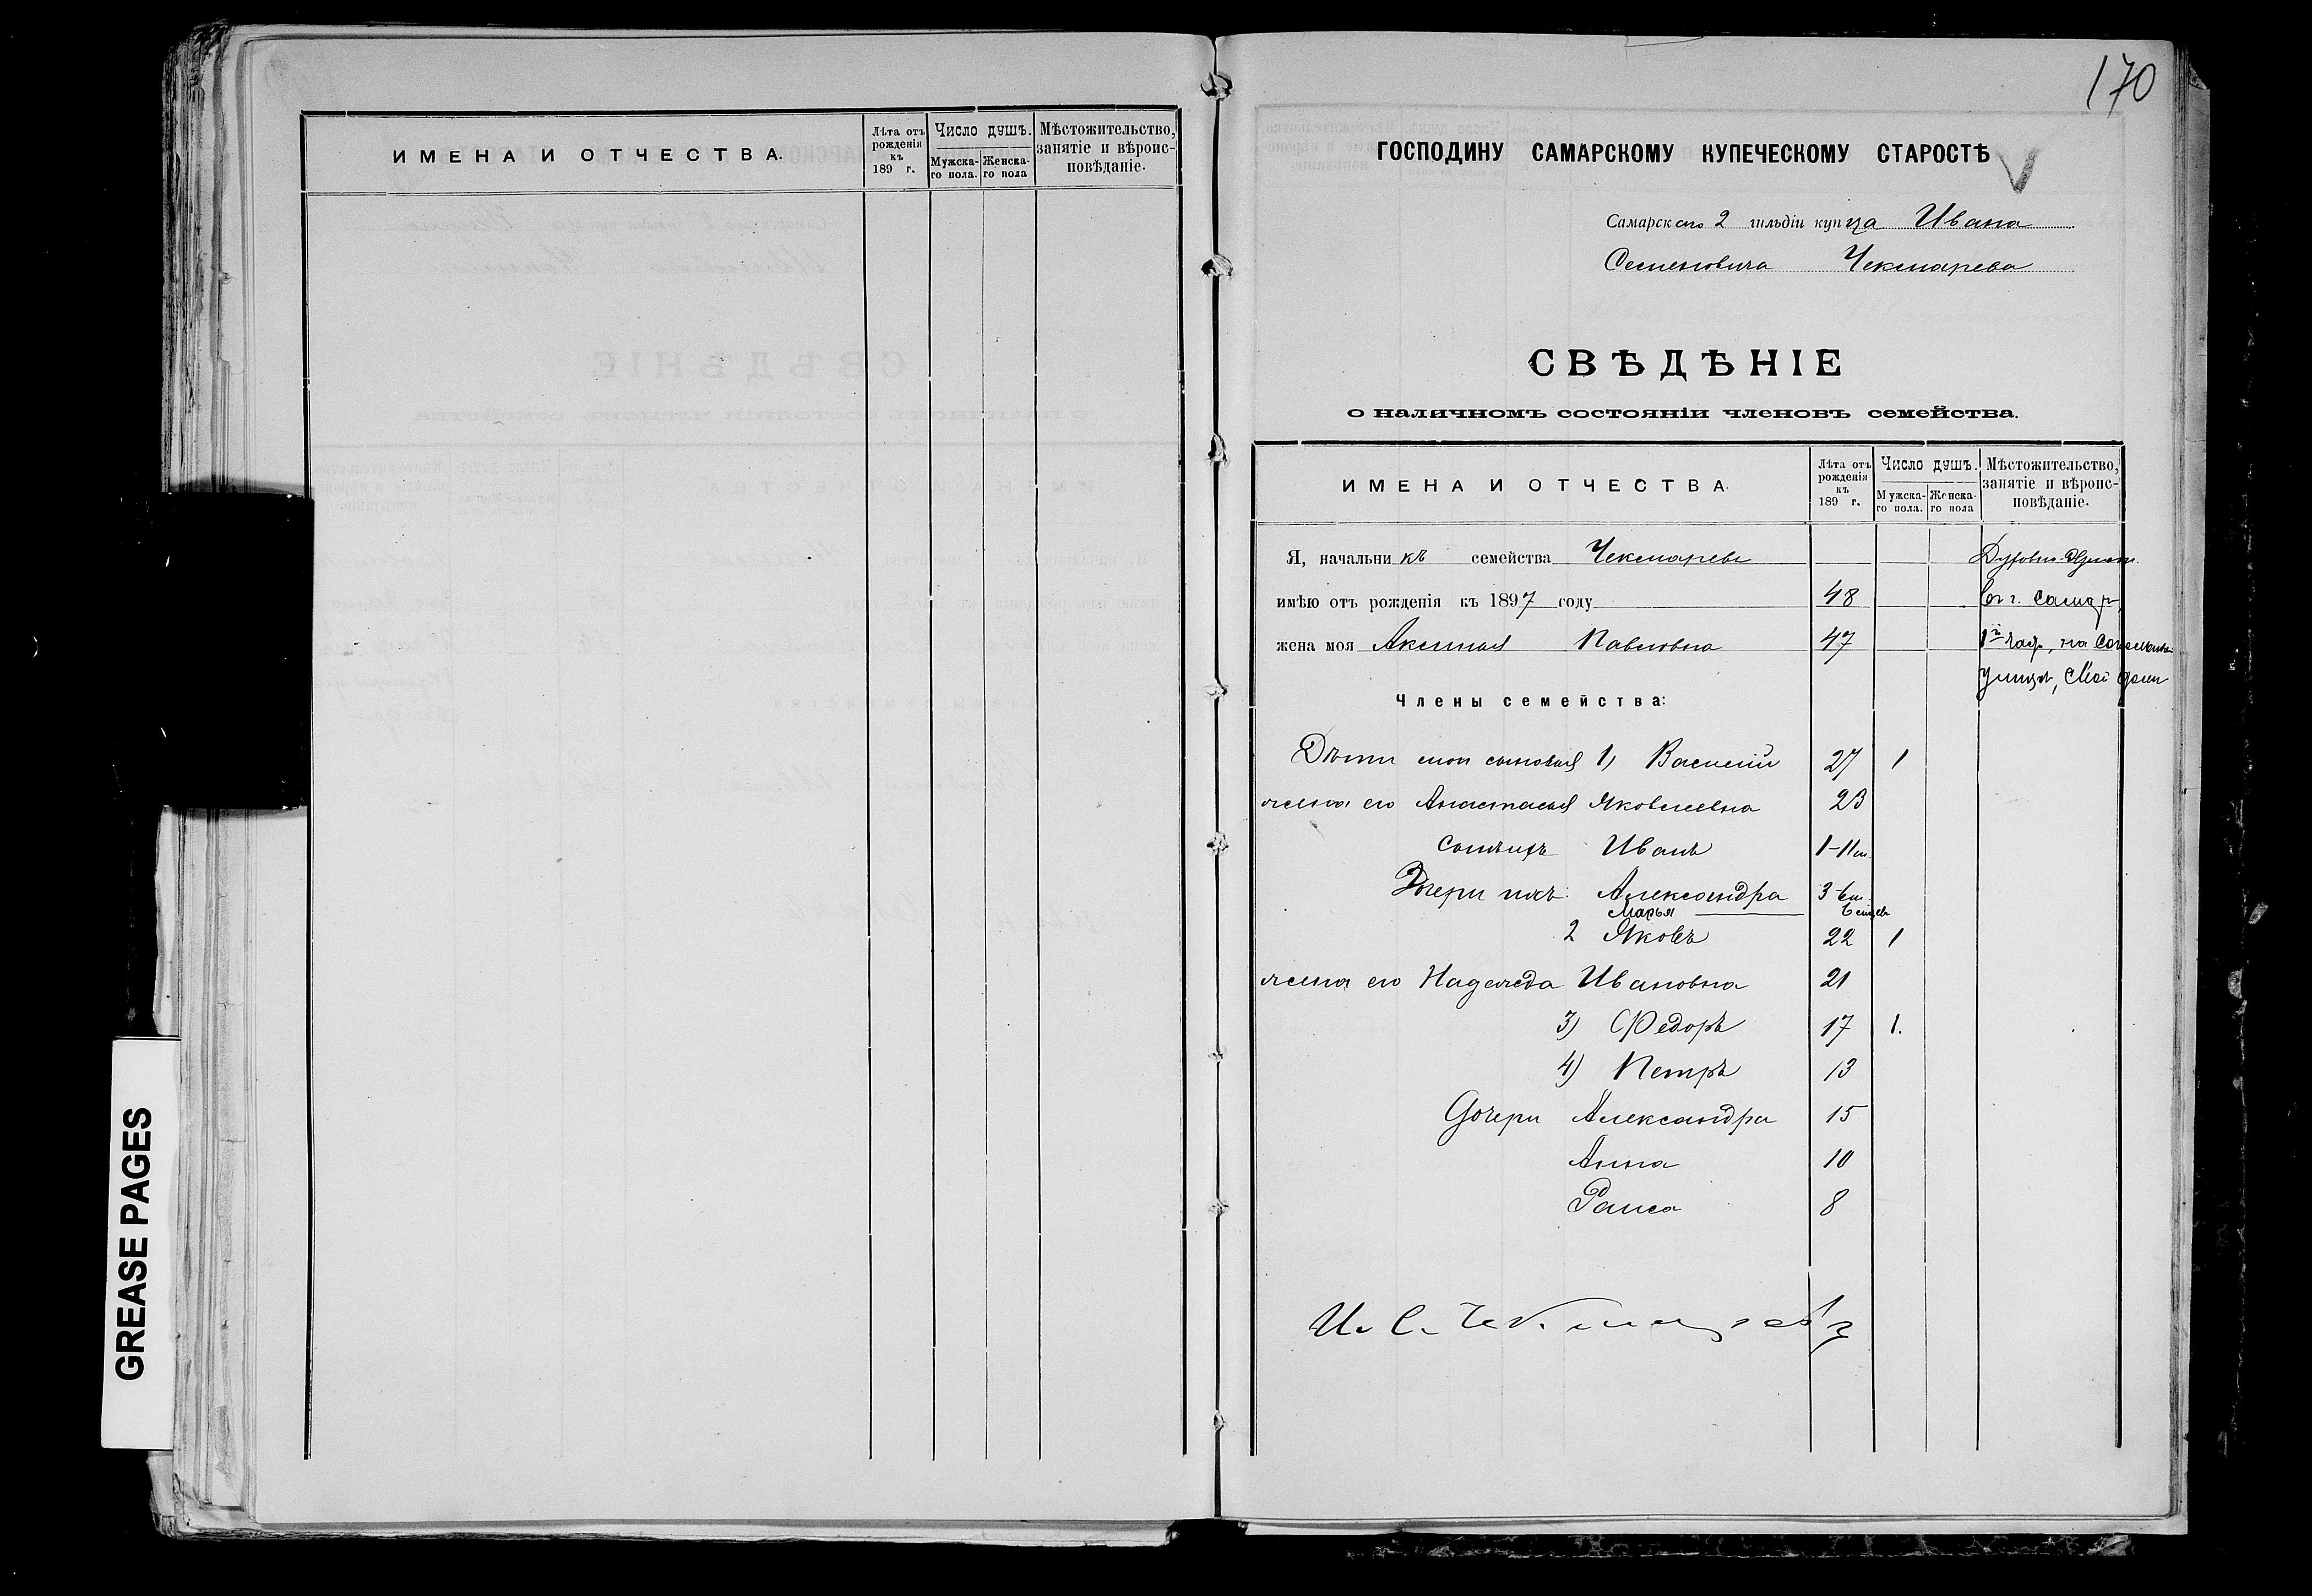 ИМЕНА И ОТЧЕСТВА.
Лѣта отъ рожденія къ 189 г.
Число душъ.
Мужска-го пола.
Женска-го пола
Мѣстожительство, занятіе и вѣроис-повѣданіе.
170
ГОСПОДИНУ САМАРСКОМУ КУПЕЧЕСКОМУ СТАРОСТѢ
Самарскаго 2 гильдіи купца Ивана
Семеновича Чекмарева
СВѢДѢНІЕ
о наличномъ состояніи членовъ семейства.
ИМЕНА И ОТЧЕСТВА.
Лѣта отъ рожденія къ 189 г.
Число душъ.
Мужска-го пола.
Женска-го пола
Мѣстожительство, занятіе и вѣроис-повѣданіе.
Я, начальникъ семейства Чекмаревъ
имѣю отъ рожденія къ 1897 году 48 въ г. Самар
жена моя Аксинья Павловна 47 1й част, на
улицѣ, свой домъ
Члены семейства:
Дѣти мои сыновья 1) Василій 27 1
жена его Анастасья Яковлевна 23
сынъ ихъ Иванъ 1-11 м.
Дочери ихъ: Александра 3-6 м.
Марья 6 месяцев
2 Яковъ 22 1
жена его Надежда Ивановна 21
3) Федоръ 17 1.
4) Петръ 13
Дочери Александра 15
Анна 10
Раиса 8
И. С. Чекмаревъ
GREASE PAGES